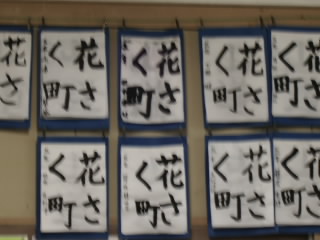 花さ
く町
花さ
く町
花さ
く町
花さ
く町
花さ
花さ
く町
花さ
く町
花さ
く町
花さ
く町